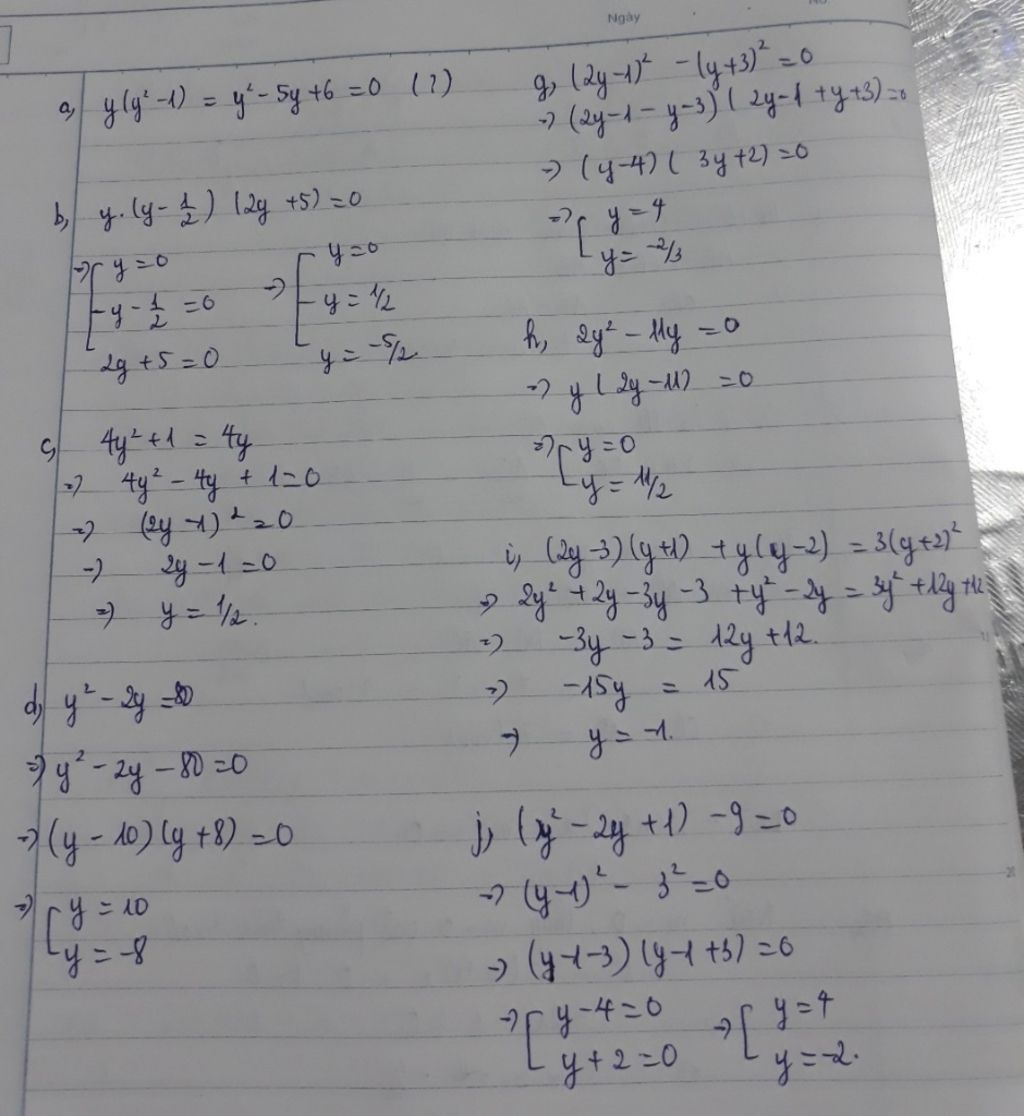 Ngày
a, y(y² -1) = y² - 5y + 6 = 0 (?)
b, y.(y - 1/2) (2y + 5) = 0
=> [ y = 0
y - 1/2 = 0
2y + 5 = 0
=> [ y = 0
y = 1/2
y = -5/2
c, 4y² + 1 = 4y
=> 4y² - 4y + 1 = 0
=> (2y - 1)² = 0
=> 2y - 1 = 0
=> y = 1/2.
d, y² - 2y = 80
=> y² - 2y - 80 = 0
=> (y - 10)(y + 8) = 0
=> [ y = 10
y = -8
g, (2y-1)² - (y+3)² = 0
=> (2y - 1 - y - 3) (2y - 1 + y + 3) = 0
=> (y - 4) (3y + 2) = 0
=> [ y = 4
y = -2/3
h, 2y² - 11y = 0
=> y (2y - 11) = 0
=> [ y = 0
y = 11/2
i, (2y - 3)(y + 1) + y(y - 2) = 3(y + 2)²
=> 2y² + 2y - 3y - 3 + y² - 2y = 3y² + 12y + 12
=> -3y - 3 = 12y + 12.
=> -15y = 15
=> y = -1.
j, (y² - 2y + 1) - 9 = 0
=> (y-1)² - 3² = 0
=> (y-1-3) (y-1+3) = 0
=> [ y - 4 = 0
y + 2 = 0
=> [ y = 4
y = -2.